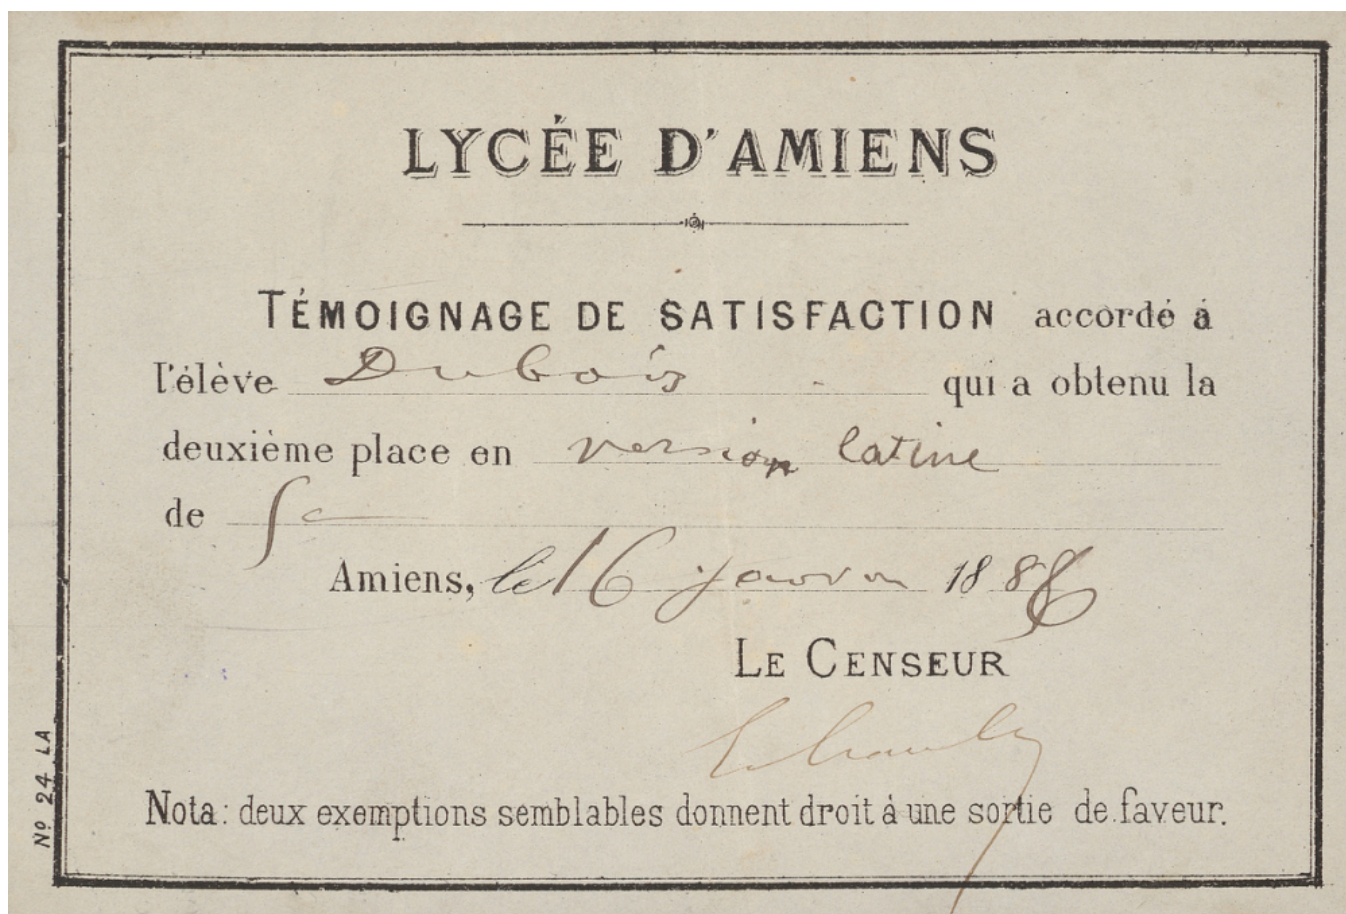 LYCÉE D'AMIENS
TÉMOIGNAGE DE SATISFACTION accordé à
l'élève Dubois qui a obtenu la
deuxième place en version latine
de
Amiens, le 16 janvier 188
LE CENSEUR
Nota : deux exemptions semblables donnent droit à une sortie de faveur.
Nº 24 LA